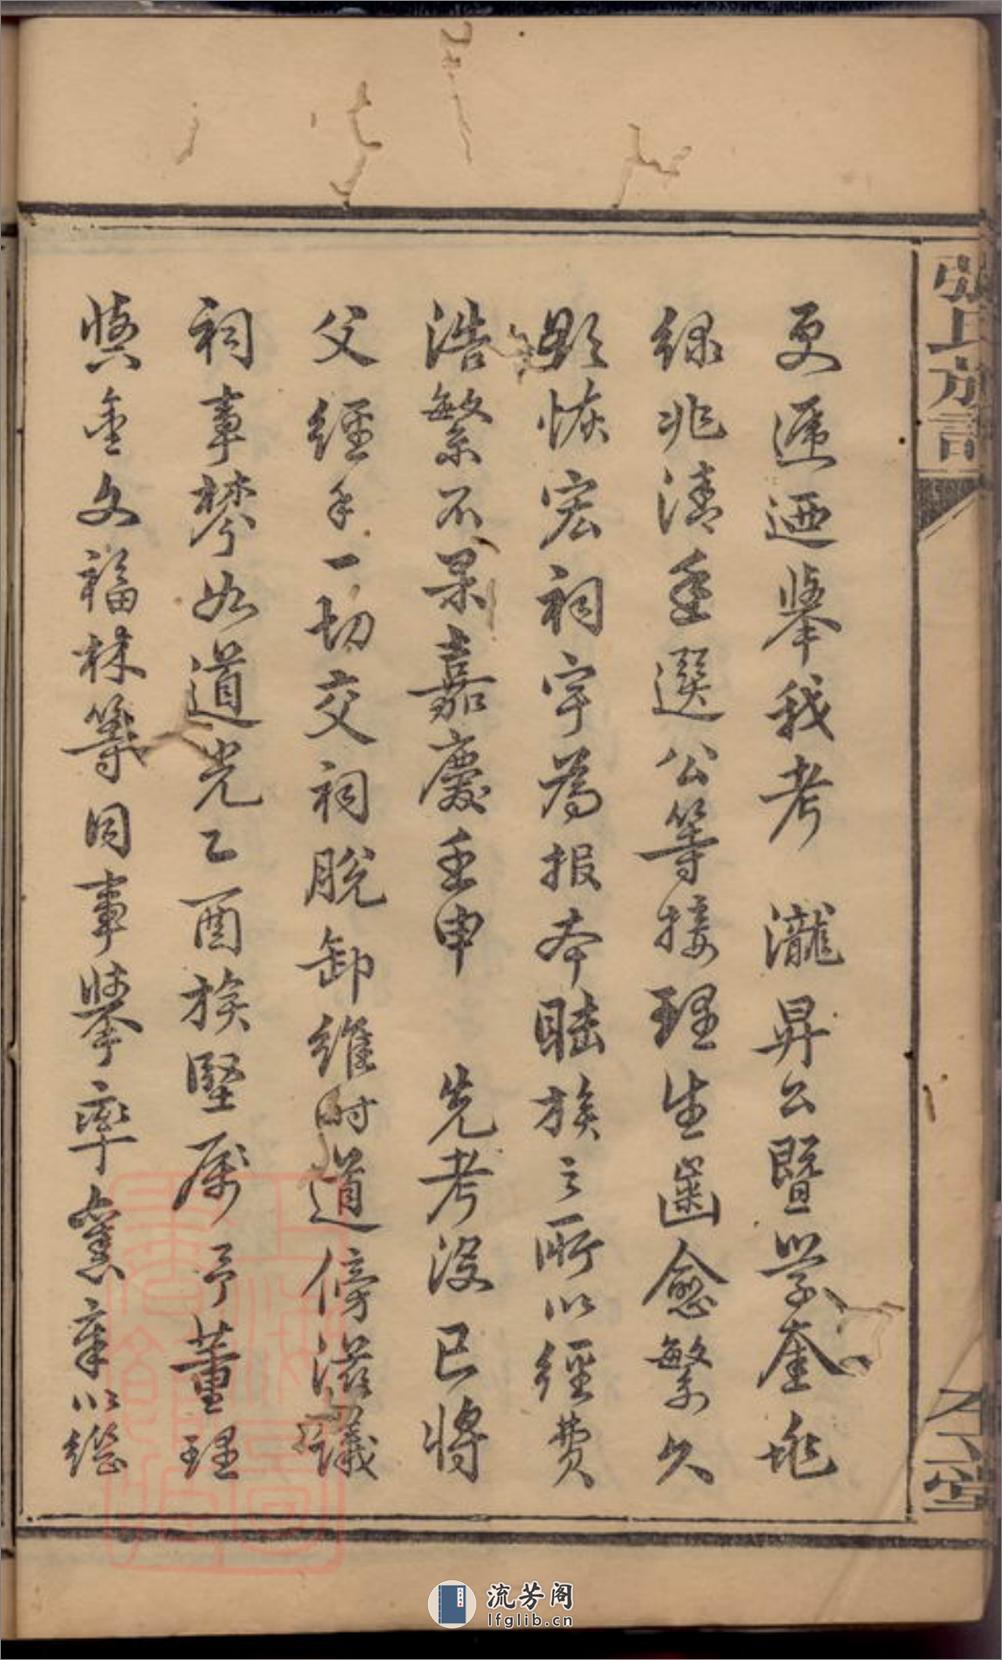 更遞迺舉我考 瀧昇公暨學奎兆
綠兆清 選公等接理生齒愈繁久
恢宏祠宇為報本睦族之所以經費
浩繁不果嘉慶壬申 先考没已將
父經手一切交祠脫卸維时道傍滋議
祠事棼如道光乙酉族堅属予董理
慎金文福林等同事舉率舊章以
張氏族譜
流芳阁
lfglib.cn